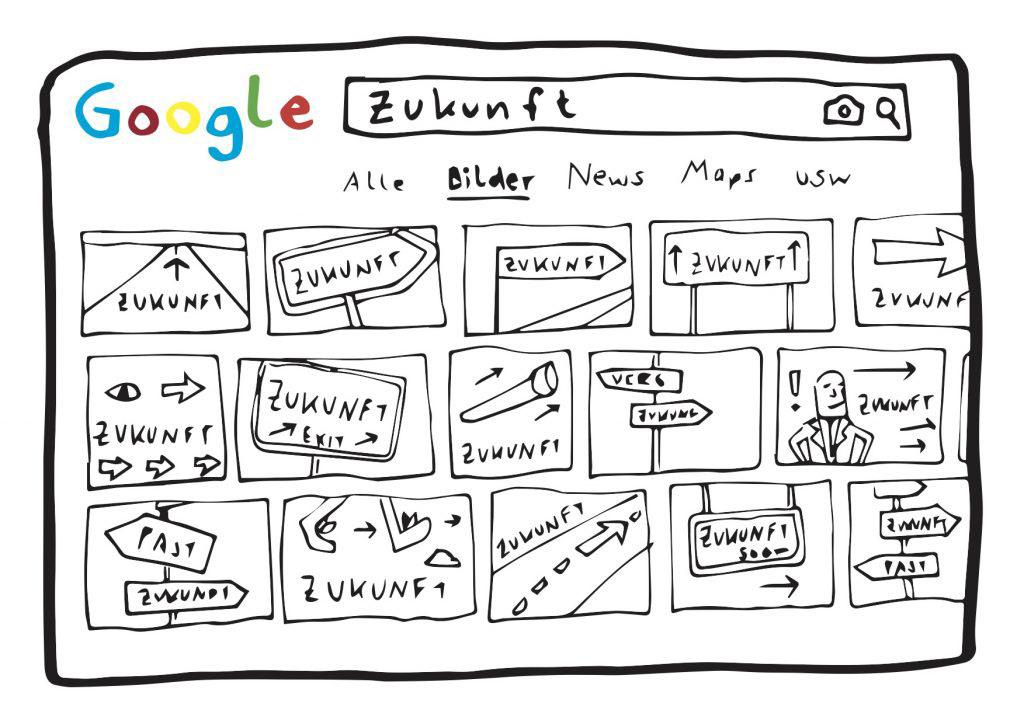 Google Zukunft
Alle Bilder News Maps usw
ZUKUNFT
ZUKUNFT
ZUKUNFT
ZUKUNFT
ZUKUNF
ZUKUNFT
ZUKUNFT
EXIT
ZUKUNFT
VERG
ZUKUNF
!
ZUKUNFT
PAST
ZUKUNFT
ZUKUNFT
ZUKUNFT
ZUKUNFT
SOON
ZUKUNFT
PAST